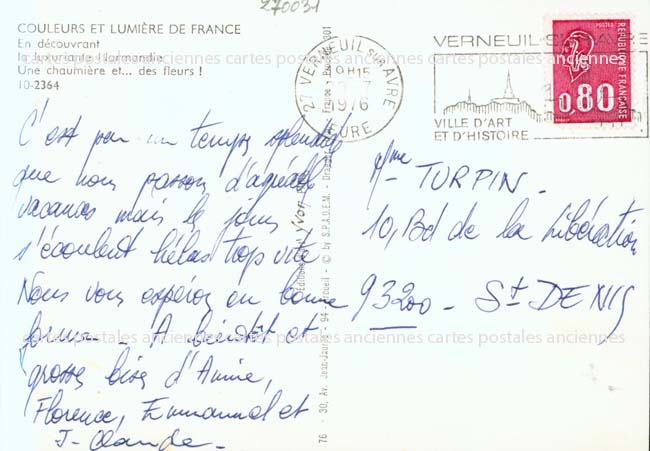 270031
COULEURS ET LUMIÈRE DE FRANCE
En découvrant
la luxuriante Normandie
Une chaumière et... des fleurs !
10-2364
27 VERNEUIL SUR AVRE
9H15
1976
EURE
VERNEUIL-SUR-AVRE
VILLE D'ART
ET D'HISTOIRE
POSTES
RÉPUBLIQUE FRANÇAISE
0,80
C'est par un temps splendide
que nous passons d'agréables
vacances mais les jours
s'écoulent hélas trop vite.
Nous vous espérons en bonne
forme. A bientôt et
grosses bises d'Annie,
Florence, Emmanuel et
J-Claude.
Mme TURPIN.
10, Bd de la Libération
93200 - St DENIS
cartes postales anciennes cartes postales anciennes cartes postales anciennes
cartes postales anciennes cartes postales anciennes cartes postales anciennes
76 - 30, Av. Jean-Jaurès - 94 - Arcueil - © by S.P.A.D.E.M. -
Éditions yvon